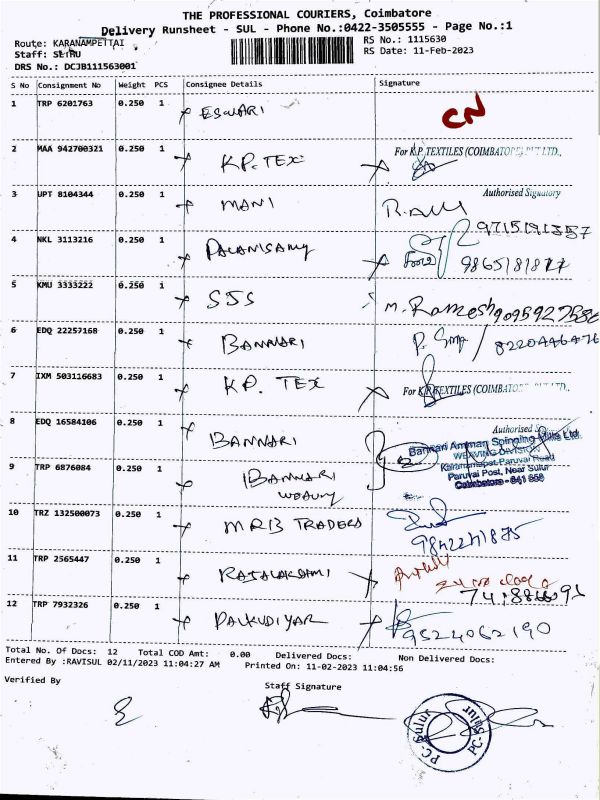 THE PROFESSIONAL COURIERS, Coimbatore
Delivery Runsheet - SUL - Phone No.:0422-3505555 - Page No.:1
Route: KARANAMPETTAI
RS No.: 1115630
Staff:
RS Date: 11-Feb-2023
DRS No.: DCJB111563001
S No Consignment No Weight PCS Consignee Details Signature
1 TRP 6201763 0.250 1 ESWARI CN
2 MAA 942700321 0.250 1 K.P. TEX For K.P. TEXTILES (COIMBATORE) PVT LTD.,
Authorised Signatory
3 UPT 8104344 0.250 1 MANI
9715191357
4 NKL 3113216 0.250 1 PALANISAMY
9865181877
5 KMU 3333222 0.250 1 SJS M. Ramesh 9095927586
6 EDQ 22257168 0.250 1 BANNARI 8220446476
7 IXM 503116683 0.250 1 K.P. TEX For K.P. TEXTILES (COIMBATORE) PVT LTD.,
Authorised
8 EDQ 16584106 0.250 1 BANNARI
Bannari Amman Spinning Mills Ltd
WEAVING DIVISION
Karanampet-Paruvai Road
Paruvai Post, Near Sulur
Coimbatore - 641 658
9 TRP 6876084 0.250 1 BANNARI
10 TRZ 132500073 0.250 1 MRB TRADERS
9842241875
11 TRP 2565447 0.250 1 RAJALAKSHMI
12 TRP 7932326 0.250 1 PALKUDIYAR 9524062190
Total No. Of Docs: 12 Total COD Amt: 0.00 Delivered Docs: Non Delivered Docs:
Entered By :RAVISUL 02/11/2023 11:04:27 AM Printed On: 11-02-2023 11:04:56
Verified By
Staff Signature
PC-Sulur PC-Sulur